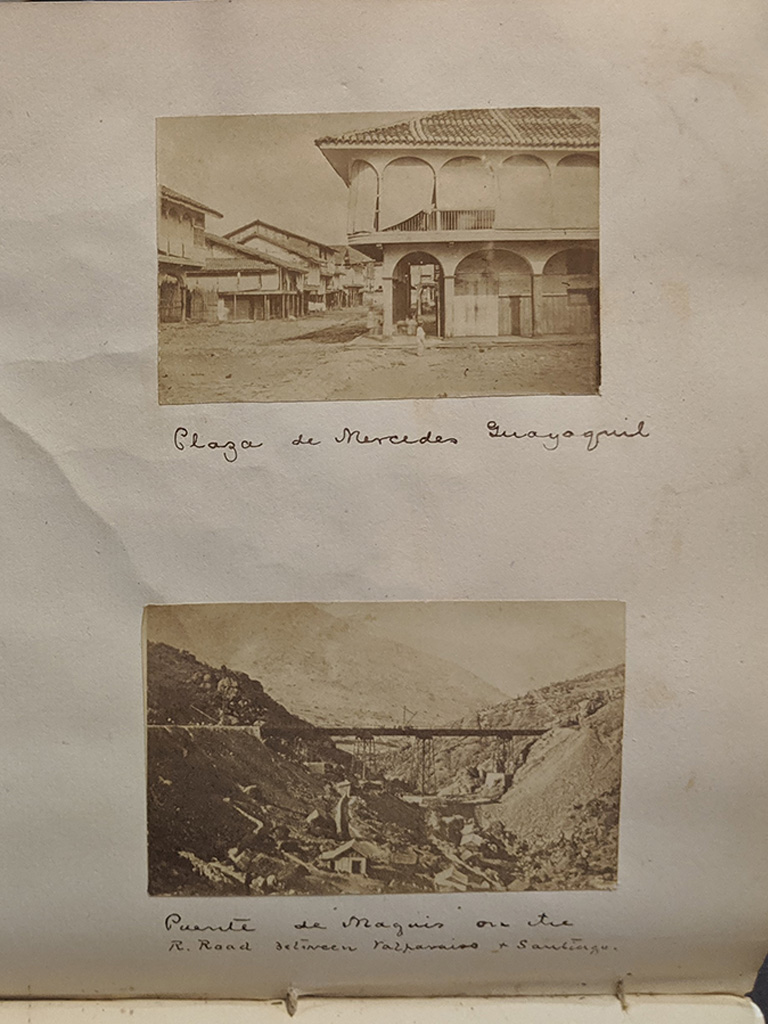 Plaza de Mercedes Guayaquil
Puente de "Maquis" on the
R. Road between Valparaiso + Santiago.